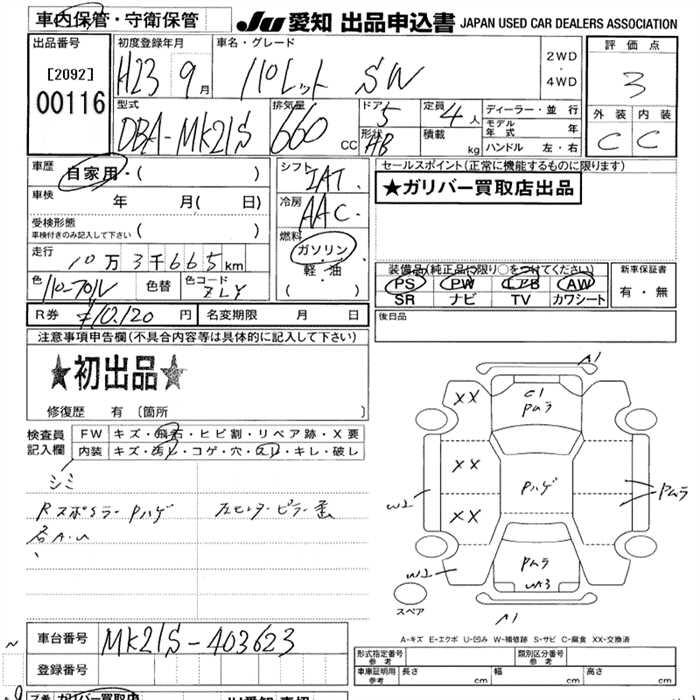 車内保管・守衛保管
JU 愛知 出品申込書 JAPAN USED CAR DEALERS ASSOCIATION
出品番号
[2092]
00116
初度登録年月
H23 9月
車名・グレード
パレット SW
2WD
・
4WD
評価点
3
外装 内装
C C
型式
DBA-MK21S
排気量
660 CC
ドア 5
形状 HB
定員 4人
積載 kg
ディーラー・並行
モデル年式 年
ハンドル 左・右
車歴 自家用・( )
車検 年 月( 日)
受検形態
車検付きのみ記入して下さい ( )
走行 10万3千665km
色 色替 色コード
ZLY
シフト
IAT
冷房
AAC
燃料
ガソリン
・
軽・油
( )
セールスポイント(正常に機能するものに限ります)
★ガリバー買取店出品
装備品(純正品に限り○をつけてください)
PS PW エアB AW
SR ナビ TV カワシート
新車保証書
有・無
R券 ¥10,120 円 名変期限 月 日
後日品
注意事項申告欄(不具合内容等は具体的に記入して下さい)
★初出品★
修復歴 有 〔箇所 〕
検査員記入欄
FW キズ・飛石・ヒビ割・リペア跡・X要
内装 キズ・汚れ・コゲ・穴・スレ・キレ・破レ
シミ
Rスポイラー Pハゲ
左センターピラー
各A.U
A1
XX
C1
Pムラ
XX
Pハゲ
W2
Pムラ
XX
W2
Pムラ
UA3
スペア
A1
A-キズ E-エクボ U-凹み W-補修跡 S-サビ C-腐食 XX-交換済
車台番号 MK21S-403623
登録番号
形式指定番号 参考
類別区分番号 参考
車庫証明用 参考 長さ cm 幅 cm 高さ cm
ガリバー買取店
JU愛知